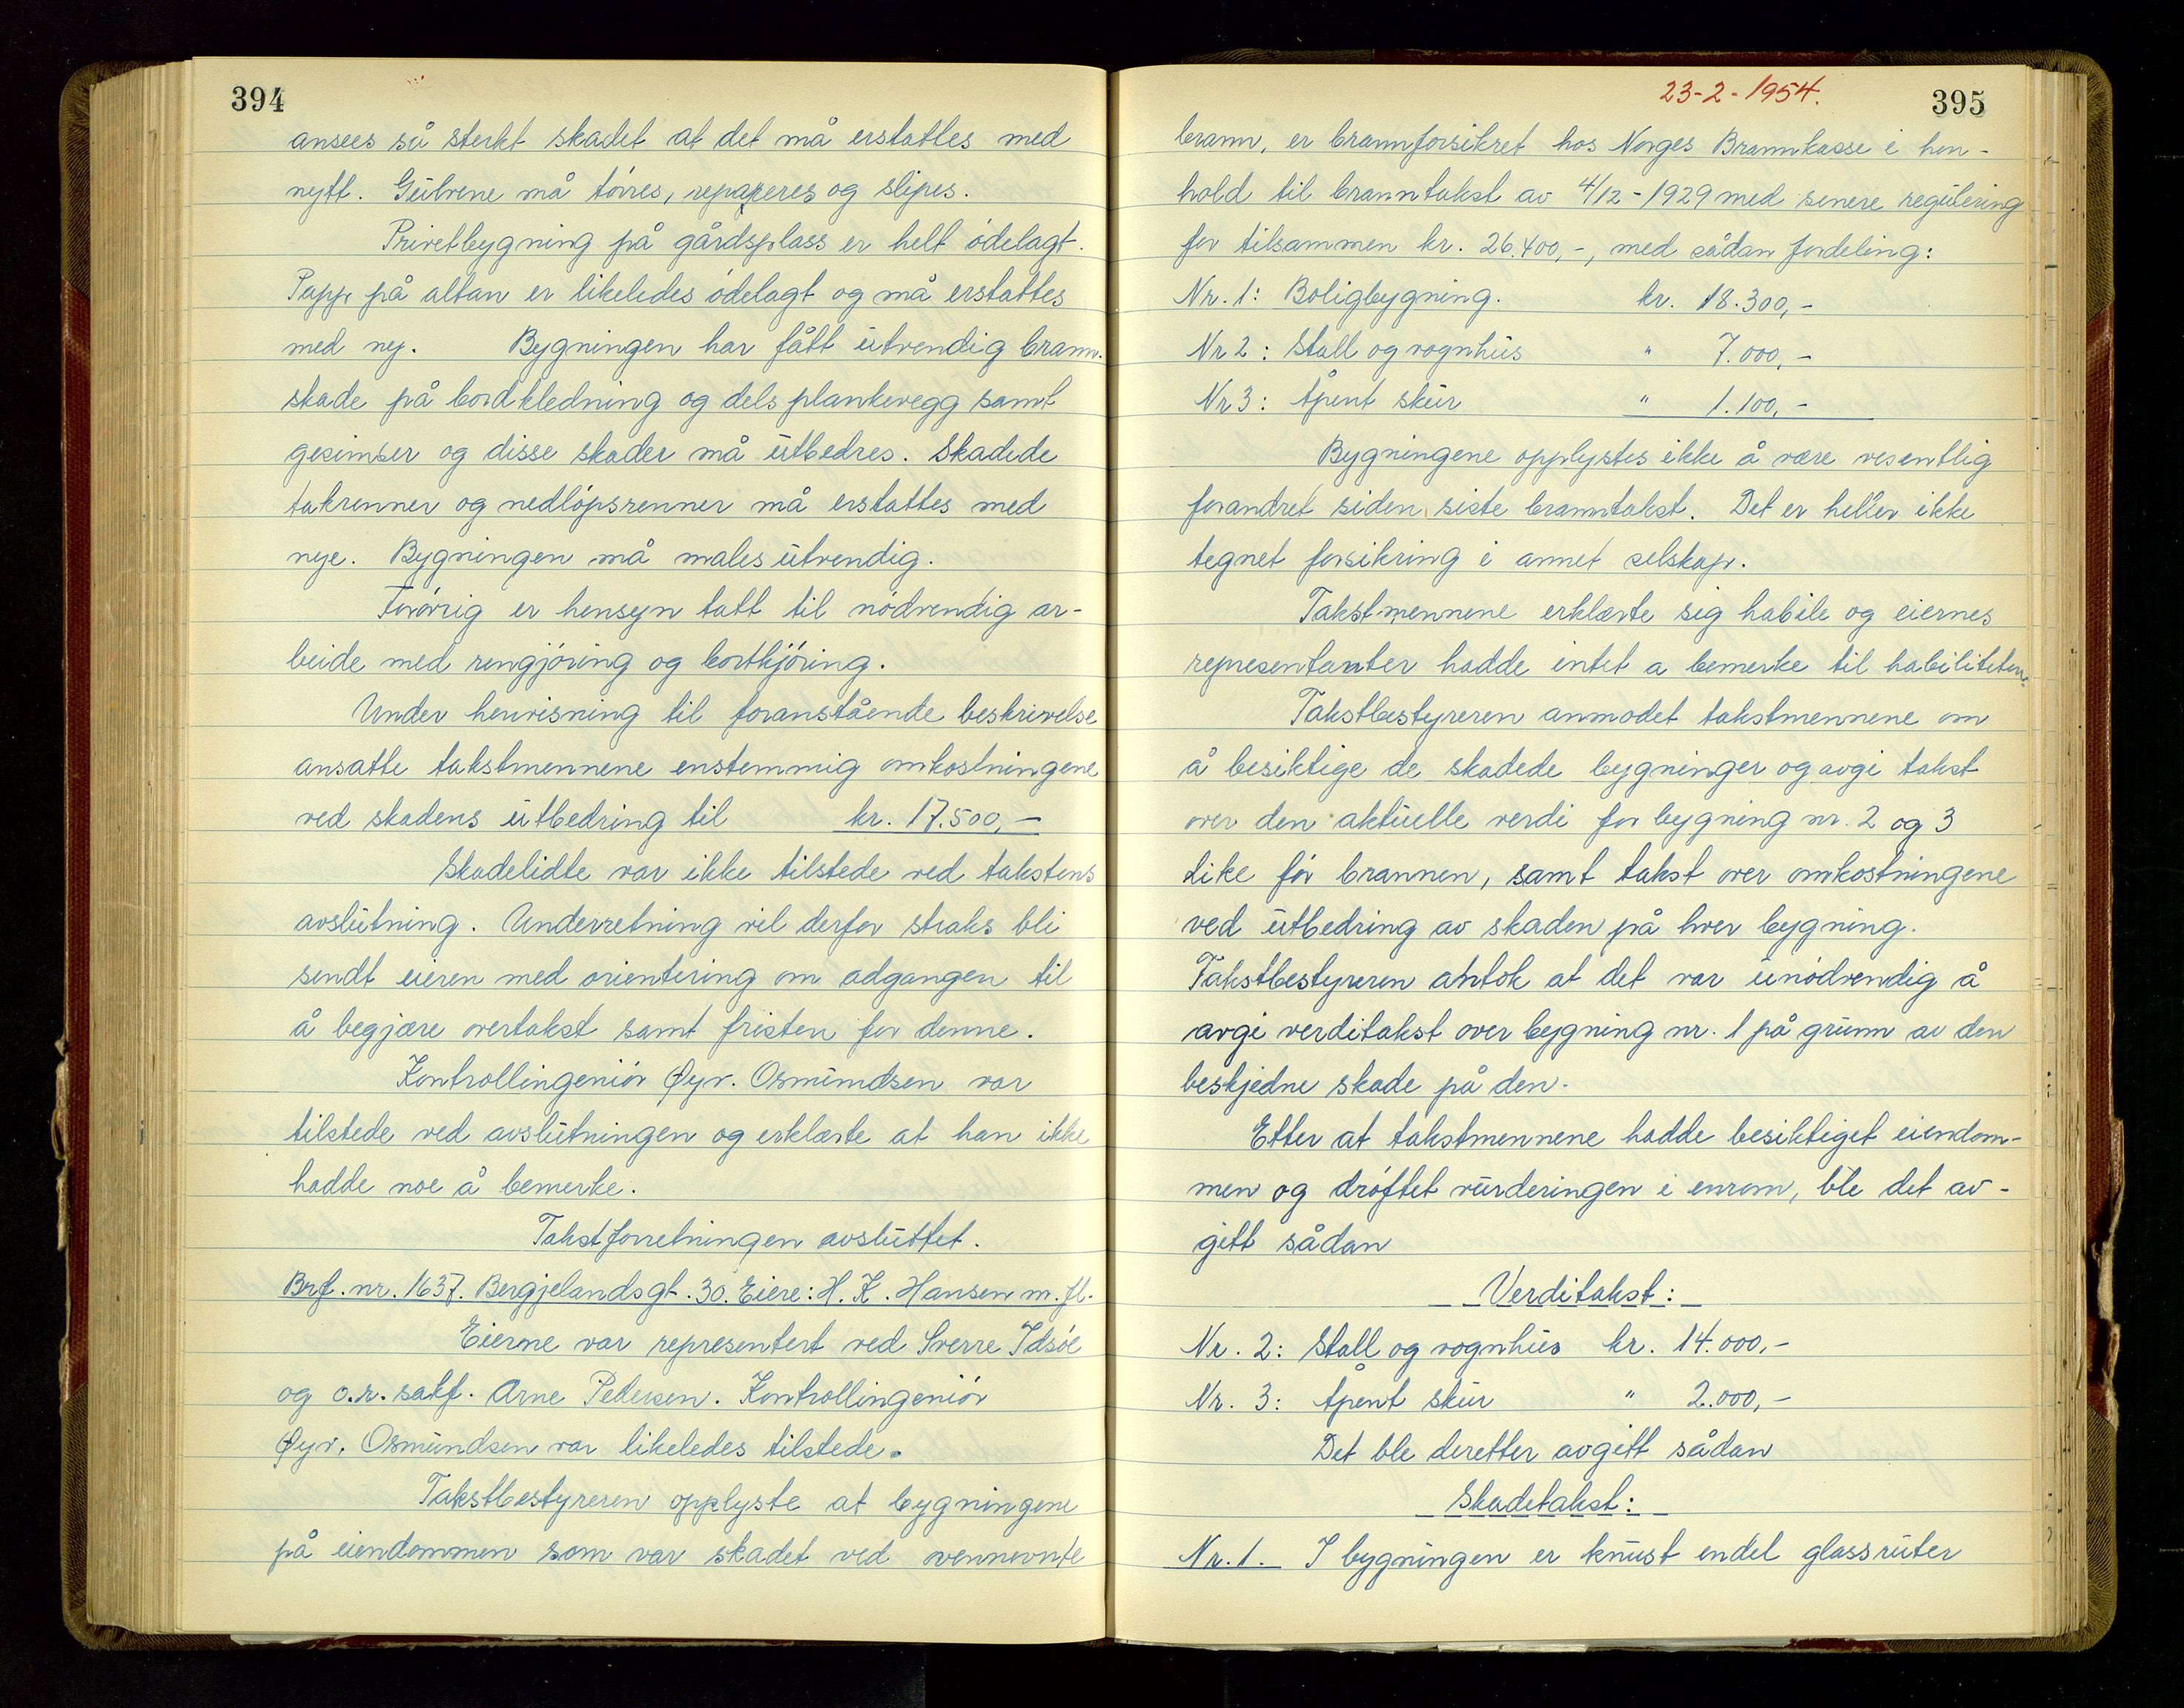 394
ansees så sterkt skadet at det må erstattes med
nytt. Gulvene må törres, repareres og slipes.
Privetbygning på gårdsplass er helt ödelagt.
Papp på altan er likeledes ödelagt og må erstattes
med ny. Bygningen har fått utvendig brann-
skade på bordkledning og dels plankevegg samt
gesimser og disse skader må utbedres. Skadede
takrenner og nedlöpsrenner må erstattes med
nye. Bygningen må males utvendig.
Forövrig er hensyn tatt til nödvendig ar-
beide med rengjöring og bortkjöring.
Under henvisning til foranstående beskrivelse
ansatte takstmennene enstemmig omkostningene
ved skadens utbedring til kr. 17.500,-
Skadelidte var ikke tilstede ved takstens
avslutning. Underretning vil derfor straks bli
sendt eieren med orientering om adgangen til
å begjære overtakst samt fristen for denne.
Kontrollingeniör Øyv. Osmundsen var
tilstede ved avslutningen og erklærte at han ikke
hadde noe å bemerke.
Takstforretningen avsluttet.
Brf. nr. 1637. Bergjelandsgt. 30. Eiere: H. K. Hansen m. fl.
Eierne var representert ved Sverre Idsöe
og o.r. sakf. Arne Pedersen. Kontrollingeniör
Øyv. Osmundsen var likeledes tilstede.
Takstbestyreren opplyste at bygningene
på eiendommen som var skadet ved ovennevnte
23-2-1954.
395
brann, er brannforsikret hos Norges Brannkasse i hen-
hold til branntakst av 4/12-1929 med senere regulering
for tilsammen kr. 26.400,-, med sådan fordeling:
Nr. 1: Boligbygning. kr. 18.300,-
Nr 2: Stall og vognhus " 7.000,-
Nr 3: Åpent skur " 1.100,-
Bygningene opplystes ikke å være vesentlig
forandret siden siste branntakst. Det er heller ikke
tegnet forsikring i annet selskap.
Takstmennene erklærte sig habile og eiernes
representanter hadde intet a bemerke til habiliteten.
Takstbestyreren anmodet takstmennene om
å besiktige de skadede bygninger og avgi takst
over den aktuelle verdi for bygning nr. 2 og 3
like för brannen, samt takst over omkostningene
ved utbedring av skaden på hver bygning.
Takstbestyreren antok at det var unödvendig å
avgi verditakst over bygning nr. 1 på grunn av den
beskjedne skade på den.
Etter at takstmennene hadde besiktiget eiendom-
men og dröftet vurderingen i enrom, ble det av-
gitt sådan
Verditakst:
Nr. 2: Stall og vognhus kr. 14.000,-
Nr. 3: Åpent skur " 2.000,-
Det ble deretter avgitt sådan
Skadetakst:
Nr. 1. I bygningen er knust endel glassruter